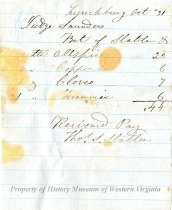 Lynchburg Oct 31
Judge Saunders
Bot of Stabler &
Allspice 25
" Copper 6
" Cloves 7
1 " 6
.44
Received Pay
Thos. S. Stabler
Property of History Museum of Western Virginia